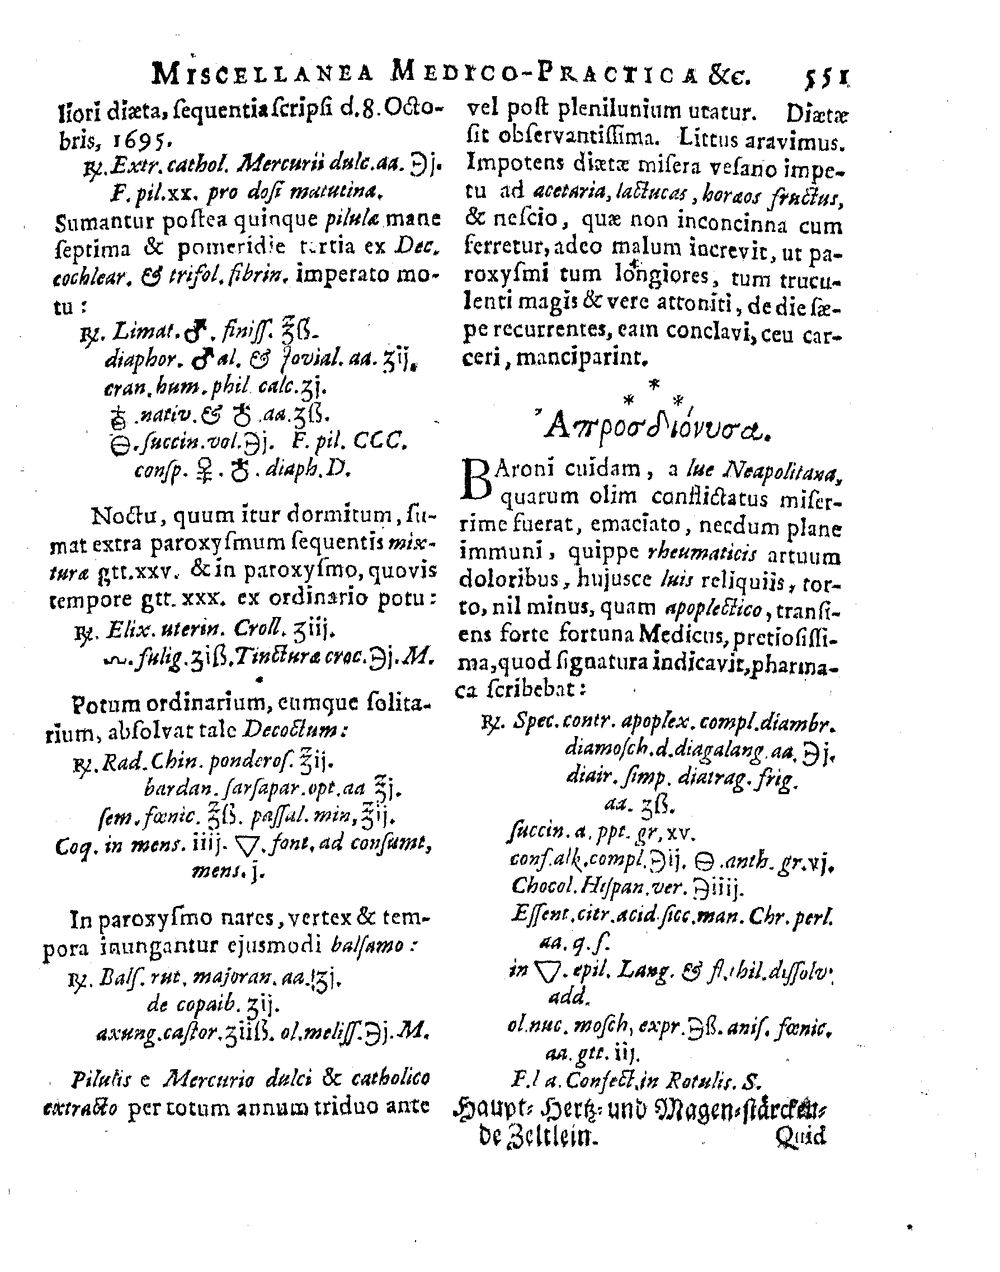 MISCELLANEA MEDICO-PRACTICA &c. 551
liori diæta, ſequentia ſcripſi d. 8. Octo-
bris, 1695.
℞. Extr. cathol. Mercurii dulc. aa. ℈j.
F. pil. xx. pro doſi matutina.
Sumantur poſtea quinque pilulæ mane
ſeptima & pomeridie tertia ex Dec.
cochlear. & trifol. fibrin. imperato mo-
tu:
℞. Limat. ♂. finiſſ. ℥ß.
diaphor. ♂al. & Jovial. aa. ʒij.
cran. hum. phil calc. ʒj.
nativ. & ♁ .aa. ʒß.
⊖. ſuccin. vol. ℈j. F. pil. CCC.
conſp. ♀ . ♁ . diaph. D.
Noctu, quum itur dormitum, ſu-
mat extra paroxyſmum ſequentis mix-
turæ gtt. xxv. & in paroxyſmo, quovis
tempore gtt. xxx. ex ordinario potu:
℞. Elix. uterin. Croll. ʒiij.
fulig. ʒiß. Tincturæ croc. ℈j. M.
Potum ordinarium, eumque ſolita-
rium, abſolvat tale Decoctum:
℞. Rad. Chin. ponderoſ. ℥ij.
bardan. ſarſapar. opt. aa ℥j.
ſem. fœnic. ℥ß. paſſul. min, ℥ij.
Coq. in mens. iiij. ▽. font. ad conſumt,
mens. j.
In paroxyſmo nares, vertex & tem-
pora inungantur ejusmodi balſamo:
℞. Balſ. rut. majoran. aa. ʒj.
de copaib. ʒij.
axung. caſtor. ʒiiß. ol. meliſſ. ℈j. M.
Pilulis e Mercurio dulci & catholico
extracto per totum annum triduo ante
vel poſt plenilunium utatur. Diætæ
ſit obſervantiſſima. Littus aravimus.
Impotens diætæ miſera veſano impe-
tu ad acetaria, lactucas, horæos fructus,
& neſcio, quæ non inconcinna cum
ferretur, adeo malum increvit, ut pa-
roxyſmi tum longiores, tum trucu-
lenti magis & vere attoniti, de die ſæ-
pe recurrentes, eam conclavi, ceu car-
ceri, manciparint.
*
* *
Ἀπροσδιόνυσα.
BAroni cuidam, a lue Neapolitana,
quarum olim conflictatus miſer-
rime fuerat, emaciato, necdum plane
immuni, quippe rheumaticis artuum
doloribus, hujusce luis reliquiis, tor-
to, nil minus, quam apoplectico, tranſi-
ens forte fortuna Medicus, pretioſiſſi-
ma, quod ſignatura indicavit, pharma-
ca ſcribebat:
℞. Spec. contr. apoplex. compl. diambr.
diamoſch. d. diagalang. aa. ℈j.
diair. ſimp. diatrag. frig.
aa. ʒß.
ſuccin. a. ppt. gr, xv.
conf. alk. compl. ℈ij. ⊖. anth. gr. vj.
Chocol. Hiſpan. ver. ℈iiij.
Eſſent. citr. acid. ſicc. man. Chr. perl.
aa. q. ſ.
in ▽. epil. Lang. & diſſolv.
add.
ol. nuc. moſch, expr. ℈ß. aniſ. fœnic.
aa. gtt. iij.
F. l a. Confect. in Rotulis. S.
Haupt- Hertz- und Magen-ſtärcken-
de Zeltlein. Quid